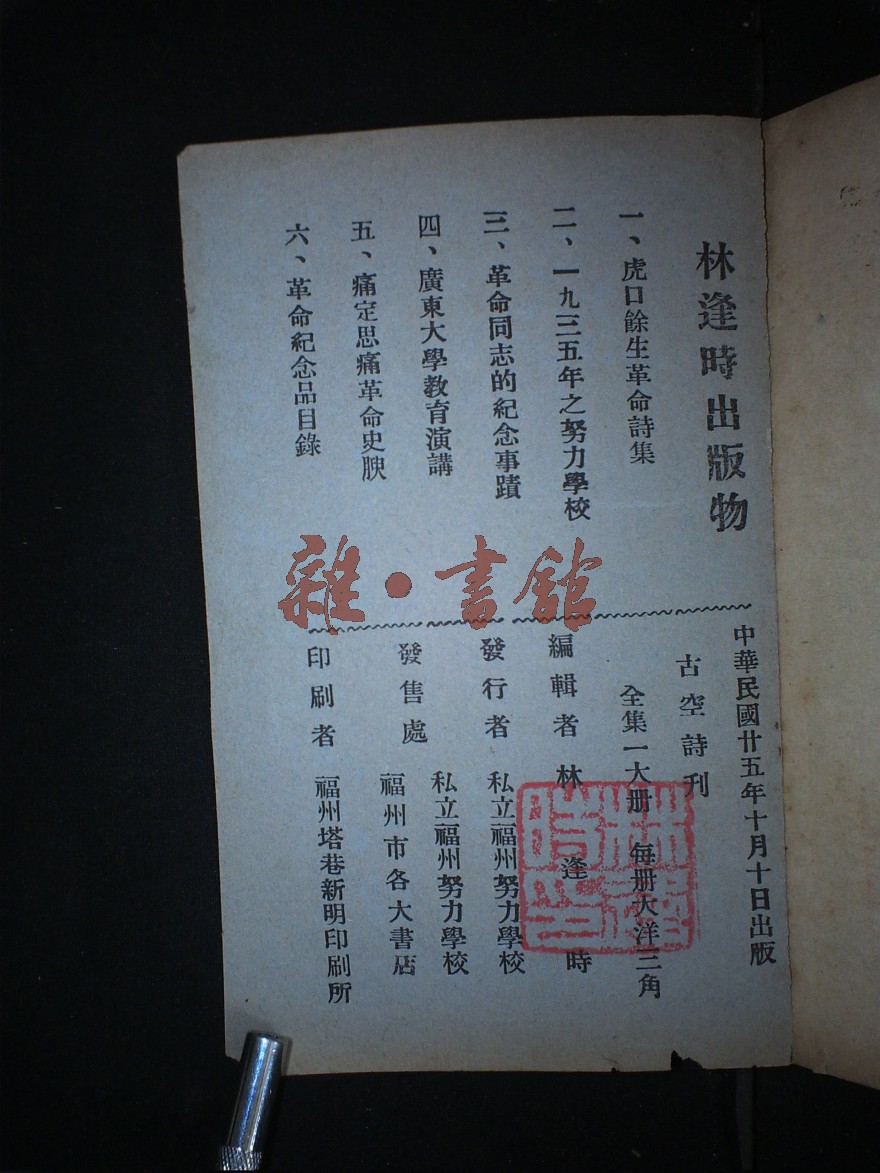 林逢時出版物
一、虎口餘生革命詩集
二、一九三五年之努力學校
三、革命同志的紀念事蹟
四、廣東大學教育演講
五、痛定思痛革命史腴
六、革命紀念品目錄
中華民國廿五年十月十日出版
古空詩刊
全集一大册 每册大洋三角
編輯者 林逢時
發行者 私立福州努力學校
發售處 私立福州努力學校
福州市各大書店
印刷者 福州塔巷新明印刷所
雜·書館